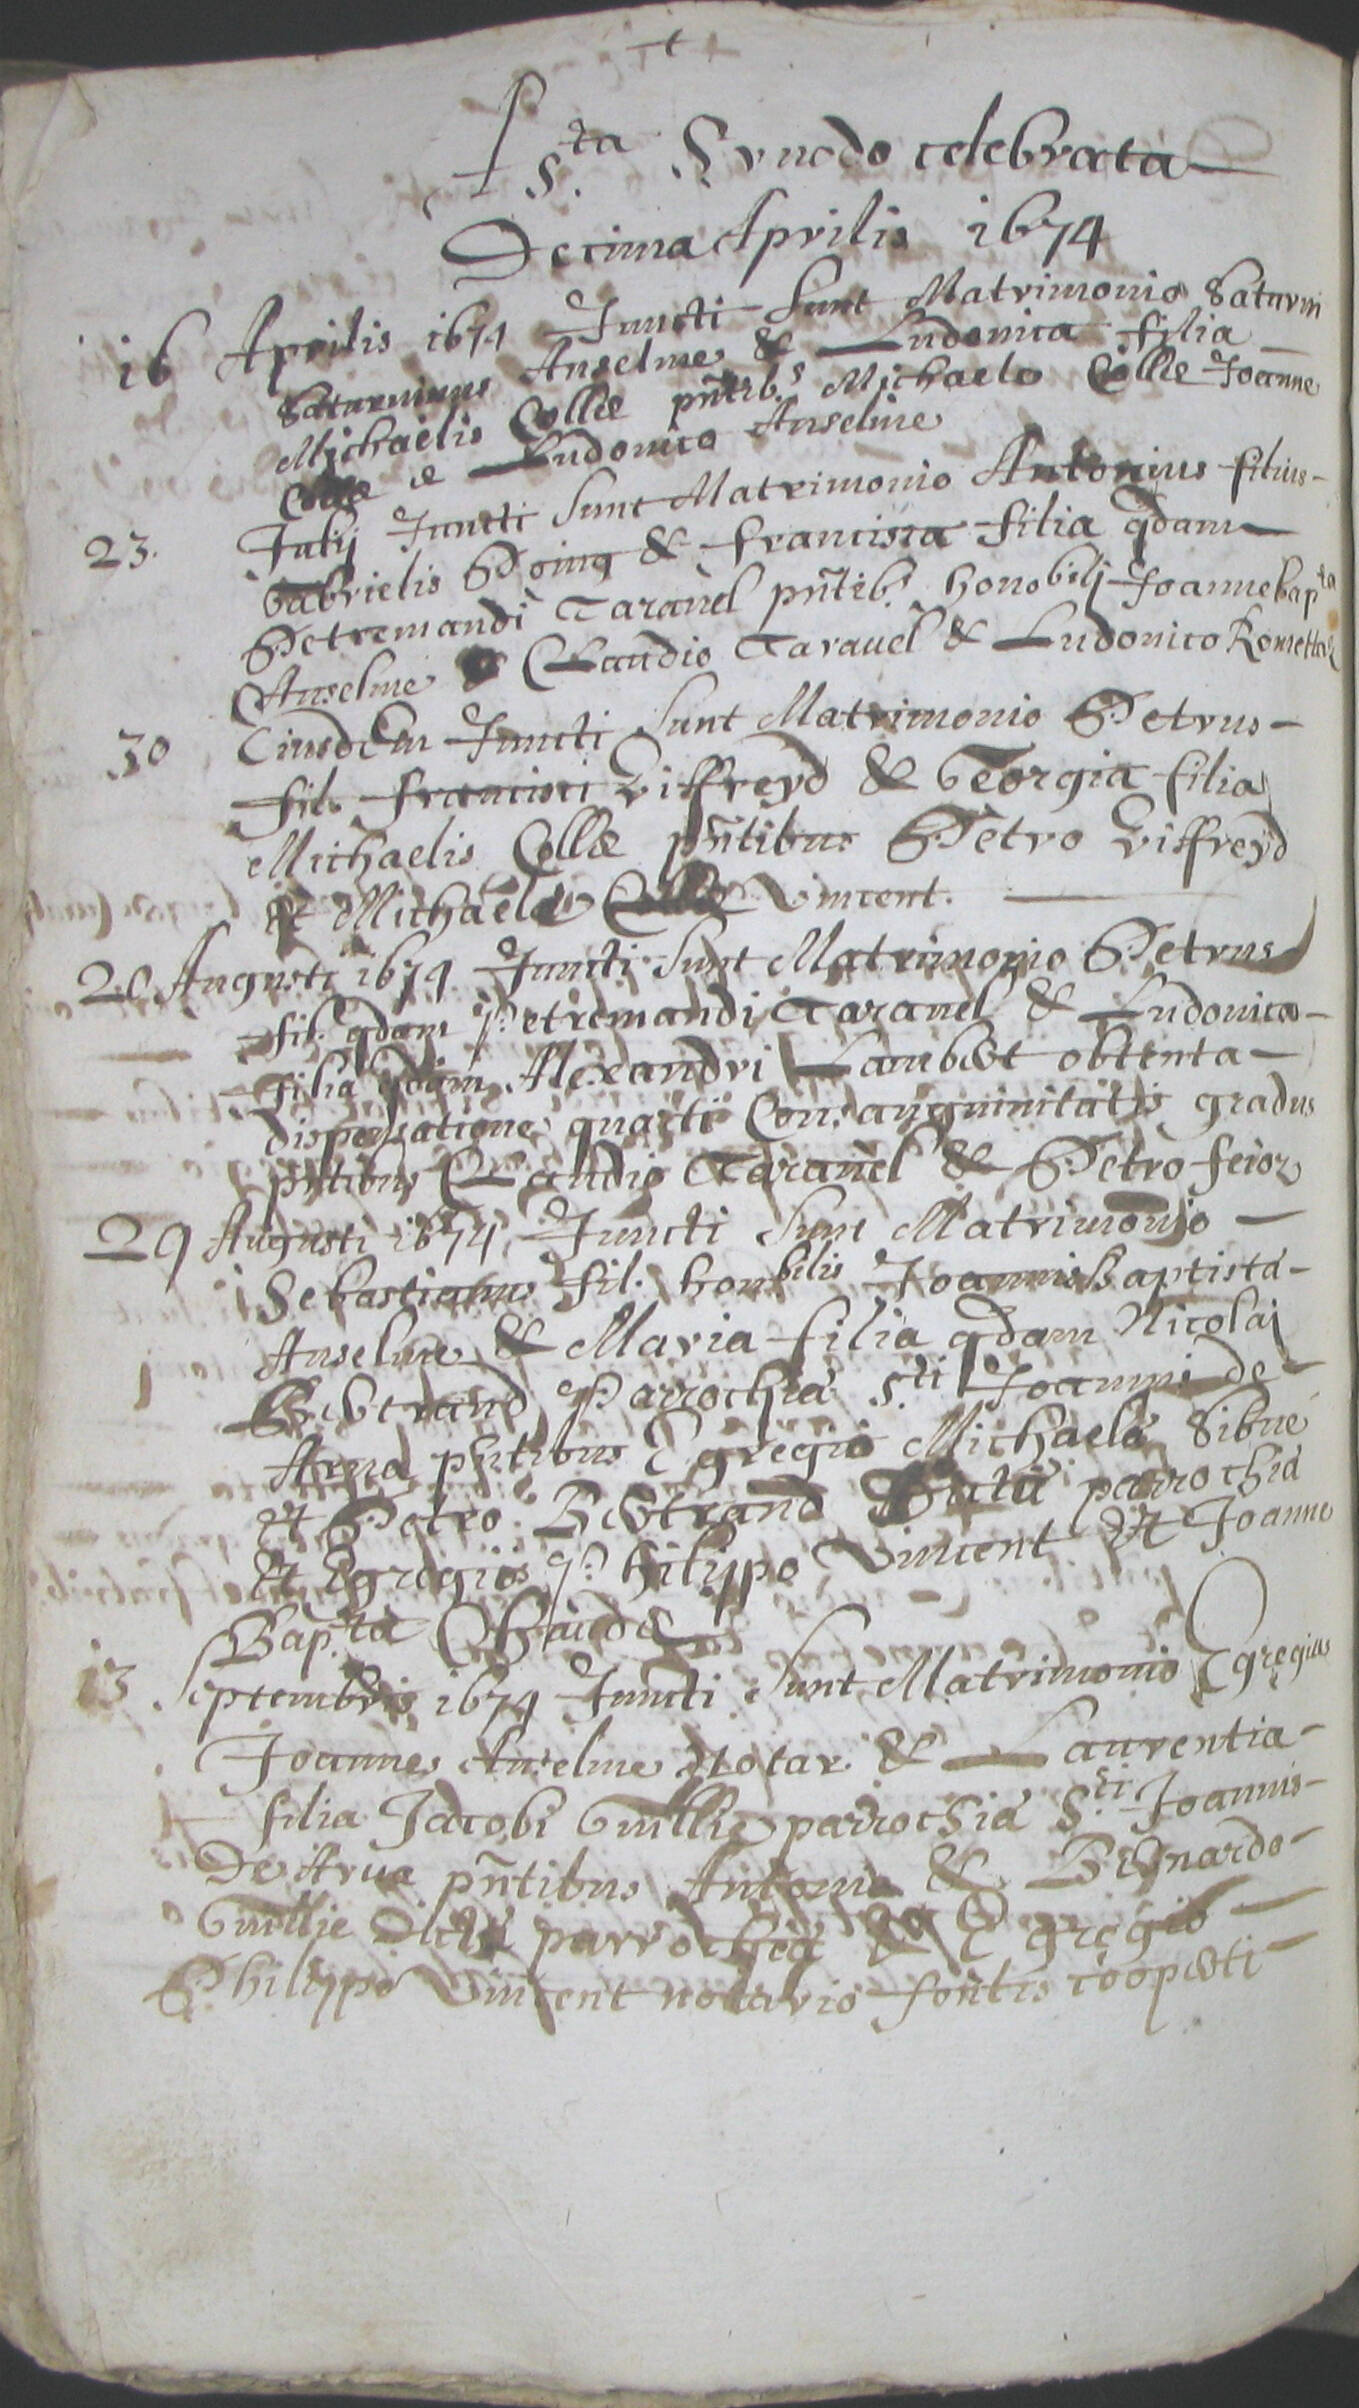 A S.ta Synodo celebrata
Decima Aprilis 1674
16 Aprilis 1674 Juncti Sunt Matrimonio Saturni
Saturninus Anselme & Ludovica filia
Michaelis Collie pntib.s Michaele Collie Joanne
Collie & Ludovico Anselme
23. Julij Juncti Sunt Matrimonio Antonius filius
Gabrielis & francisca filia qdam
Petremandi Taravel pntib.s honobilj Joanne bapta
Anselme & Claudio Taravel & Ludovico
30 Eiusdem Juncti Sunt Matrimonio Petrus
fil. francisci Viffreyd & Georgia filia
Michaelis Collie pntibus Petro Viffreyd
et Michaele Vincent.
20 Augusti 1674 Juncti Sunt Matrimonio Petrus
fil. qdam Petremandi Taravel & Ludovica
filia qdam Alexandri Lambert obtenta
dispensatione quarti Consanguinitatis gradus
pntibus Claudio Taravel & Petro
29 Augusti 1674 Juncti Sunt Matrimonio
Sebastianus fil. honbilis Joannis Baptista
Anselme & Maria filia qdam Nicolai
Bertrand Parrochia S.ti Joanni de
Arva pntibus Egregio Michaele Sibue
et Petro Bertrand parrochia
et Egregiis Philippo Vincent et Joanne
Bap.ta
13 Septembris 1674 Juncti Sunt Matrimonio Egregius
Joannes Anselme Notar. & Laurentia
filia Jacobi Guillie parrochia S.ti Joannis
De Arva pntibus Antonio & Bernardo
Guillie dicta parrochia & Egregio
Philippo Vincent notario fontis cooperti